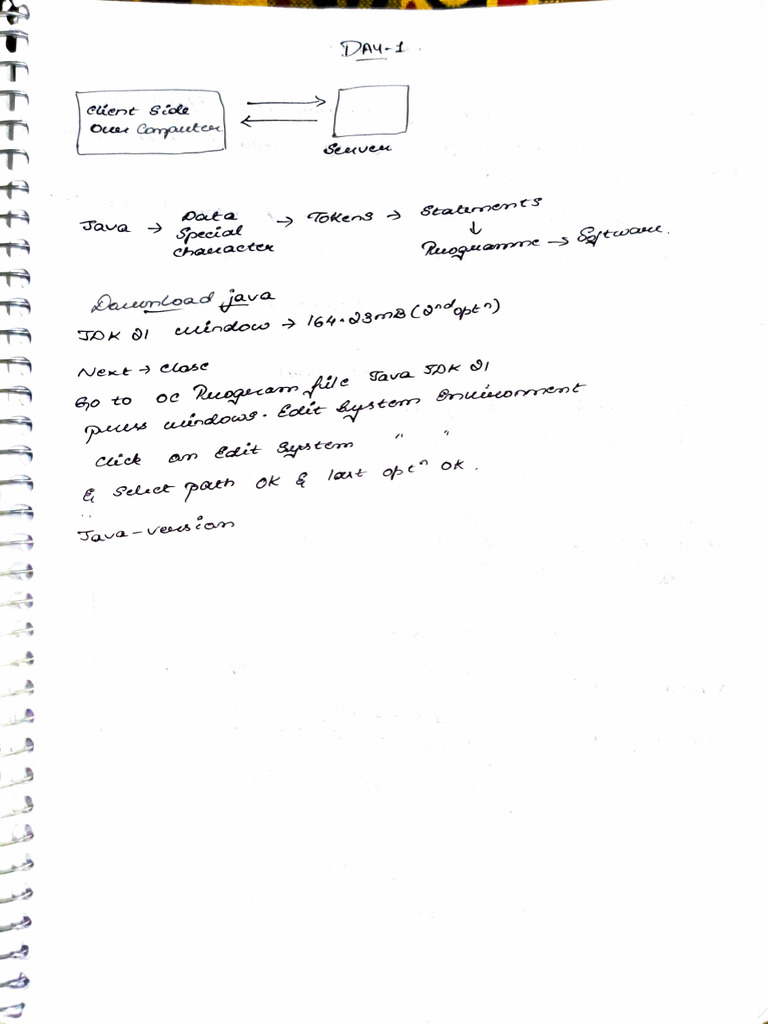 DAY-1
Client Side
Our Computer
Server
Java → Data Special Character → Tokens → Statements
↓
Programme → Software.
Download java
JDK 21 window → 164.23MB (2nd optn)
Next → close
Go to OC Program file Java JDK 21
press windows. Edit System Environment
click on Edit System " "
& Select path OK & last optn OK.
Java-version